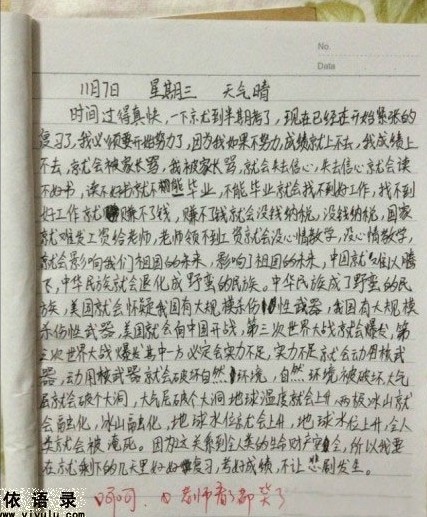 No.
Date
11月7日 星期三 天气晴
时间过得真快,一下就到半期考了,现在已经在开始紧张的
复习了,我必须要开始努力了,因为我如果不努力,成绩就上不去,我成绩上
不去,就会被家长骂,我被家长骂,就会失去信心,失去信心就会读
不好书,读不好书就不能毕业,不能毕业就会找不到好工作,找不到
好工作就赚不了钱,赚不了钱就会没钱纳税,没钱纳税,国家
就难发工资给老师,老师领不到工资就会没心情教学,没心情教学,
就会影响我们祖国的未来,影响了祖国的未来,中国就难以腾
飞,中华民族就会退化成野蛮的民族。中华民族成了野蛮的民
族,美国就会怀疑我国有大规模杀伤性武器,我国有大规模
杀伤性武器,美国就会向中国开战,第三次世界大战就会爆发,第
三次世界大战爆发其中一方必定会实力不足,实力不足就会动用核武
器,动用核武器就会破坏自然环境,自然环境被破坏大气
层就会破个大洞,大气层破个大洞地球温度就会上升,两极冰山就
会融化,冰山融化,地球水位就会上升,地球水位上升,全人
类就会被淹死。因为这关系到全人类的生命财产安全,所以我要
在就剩下的几天里好好复习,考好成绩,不让悲剧发生。
呵呵 老师看了都笑了
依语录
www.yiyulu.com